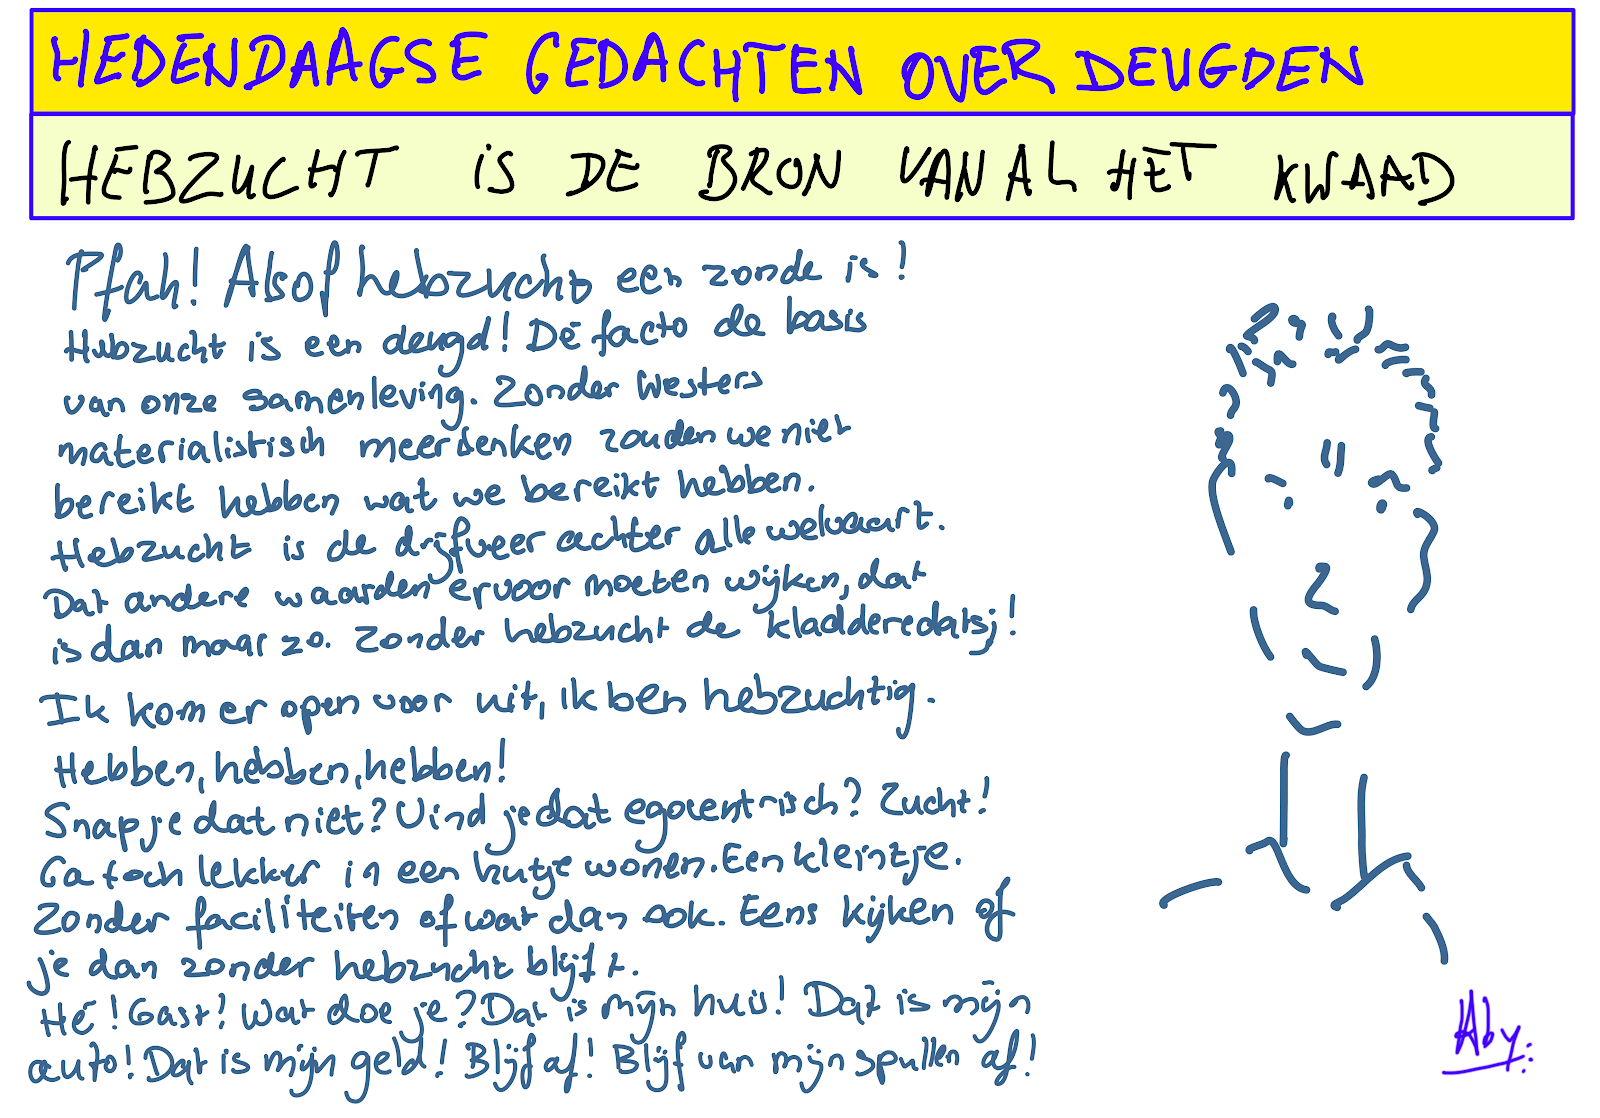 HEDENDAAGSE GEDACHTEN OVER DEUGDEN
HEBZUCHT IS DE BRON VAN AL HET KWAAD
Pfah! Alsof hebzucht een zonde is!
Hebzucht is een deugd! De facto de basis
van onze samenleving. Zonder Westers
materialistisch meerdenken zouden we niet
bereikt hebben wat we bereikt hebben.
Hebzucht is de drijfveer achter alle welvaart.
Dat andere waarden ervoor moeten wijken, dat
is dan maar zo. Zonder hebzucht de kladderedatsj!
Ik kom er open voor uit, ik ben hebzuchtig.
Hebben, hebben, hebben!
Snap je dat niet? Vind je dat egocentrisch? Zucht!
Ga toch lekker in een hutje wonen. Een kleintje.
Zonder faciliteiten of wat dan ook. Eens kijken of
je dan zonder hebzucht blijft.
Hé! Gast! Wat doe je? Dat is mijn huis! Dat is mijn
auto! Dat is mijn geld! Blijf af! Blijf van mijn spullen af!
Aby